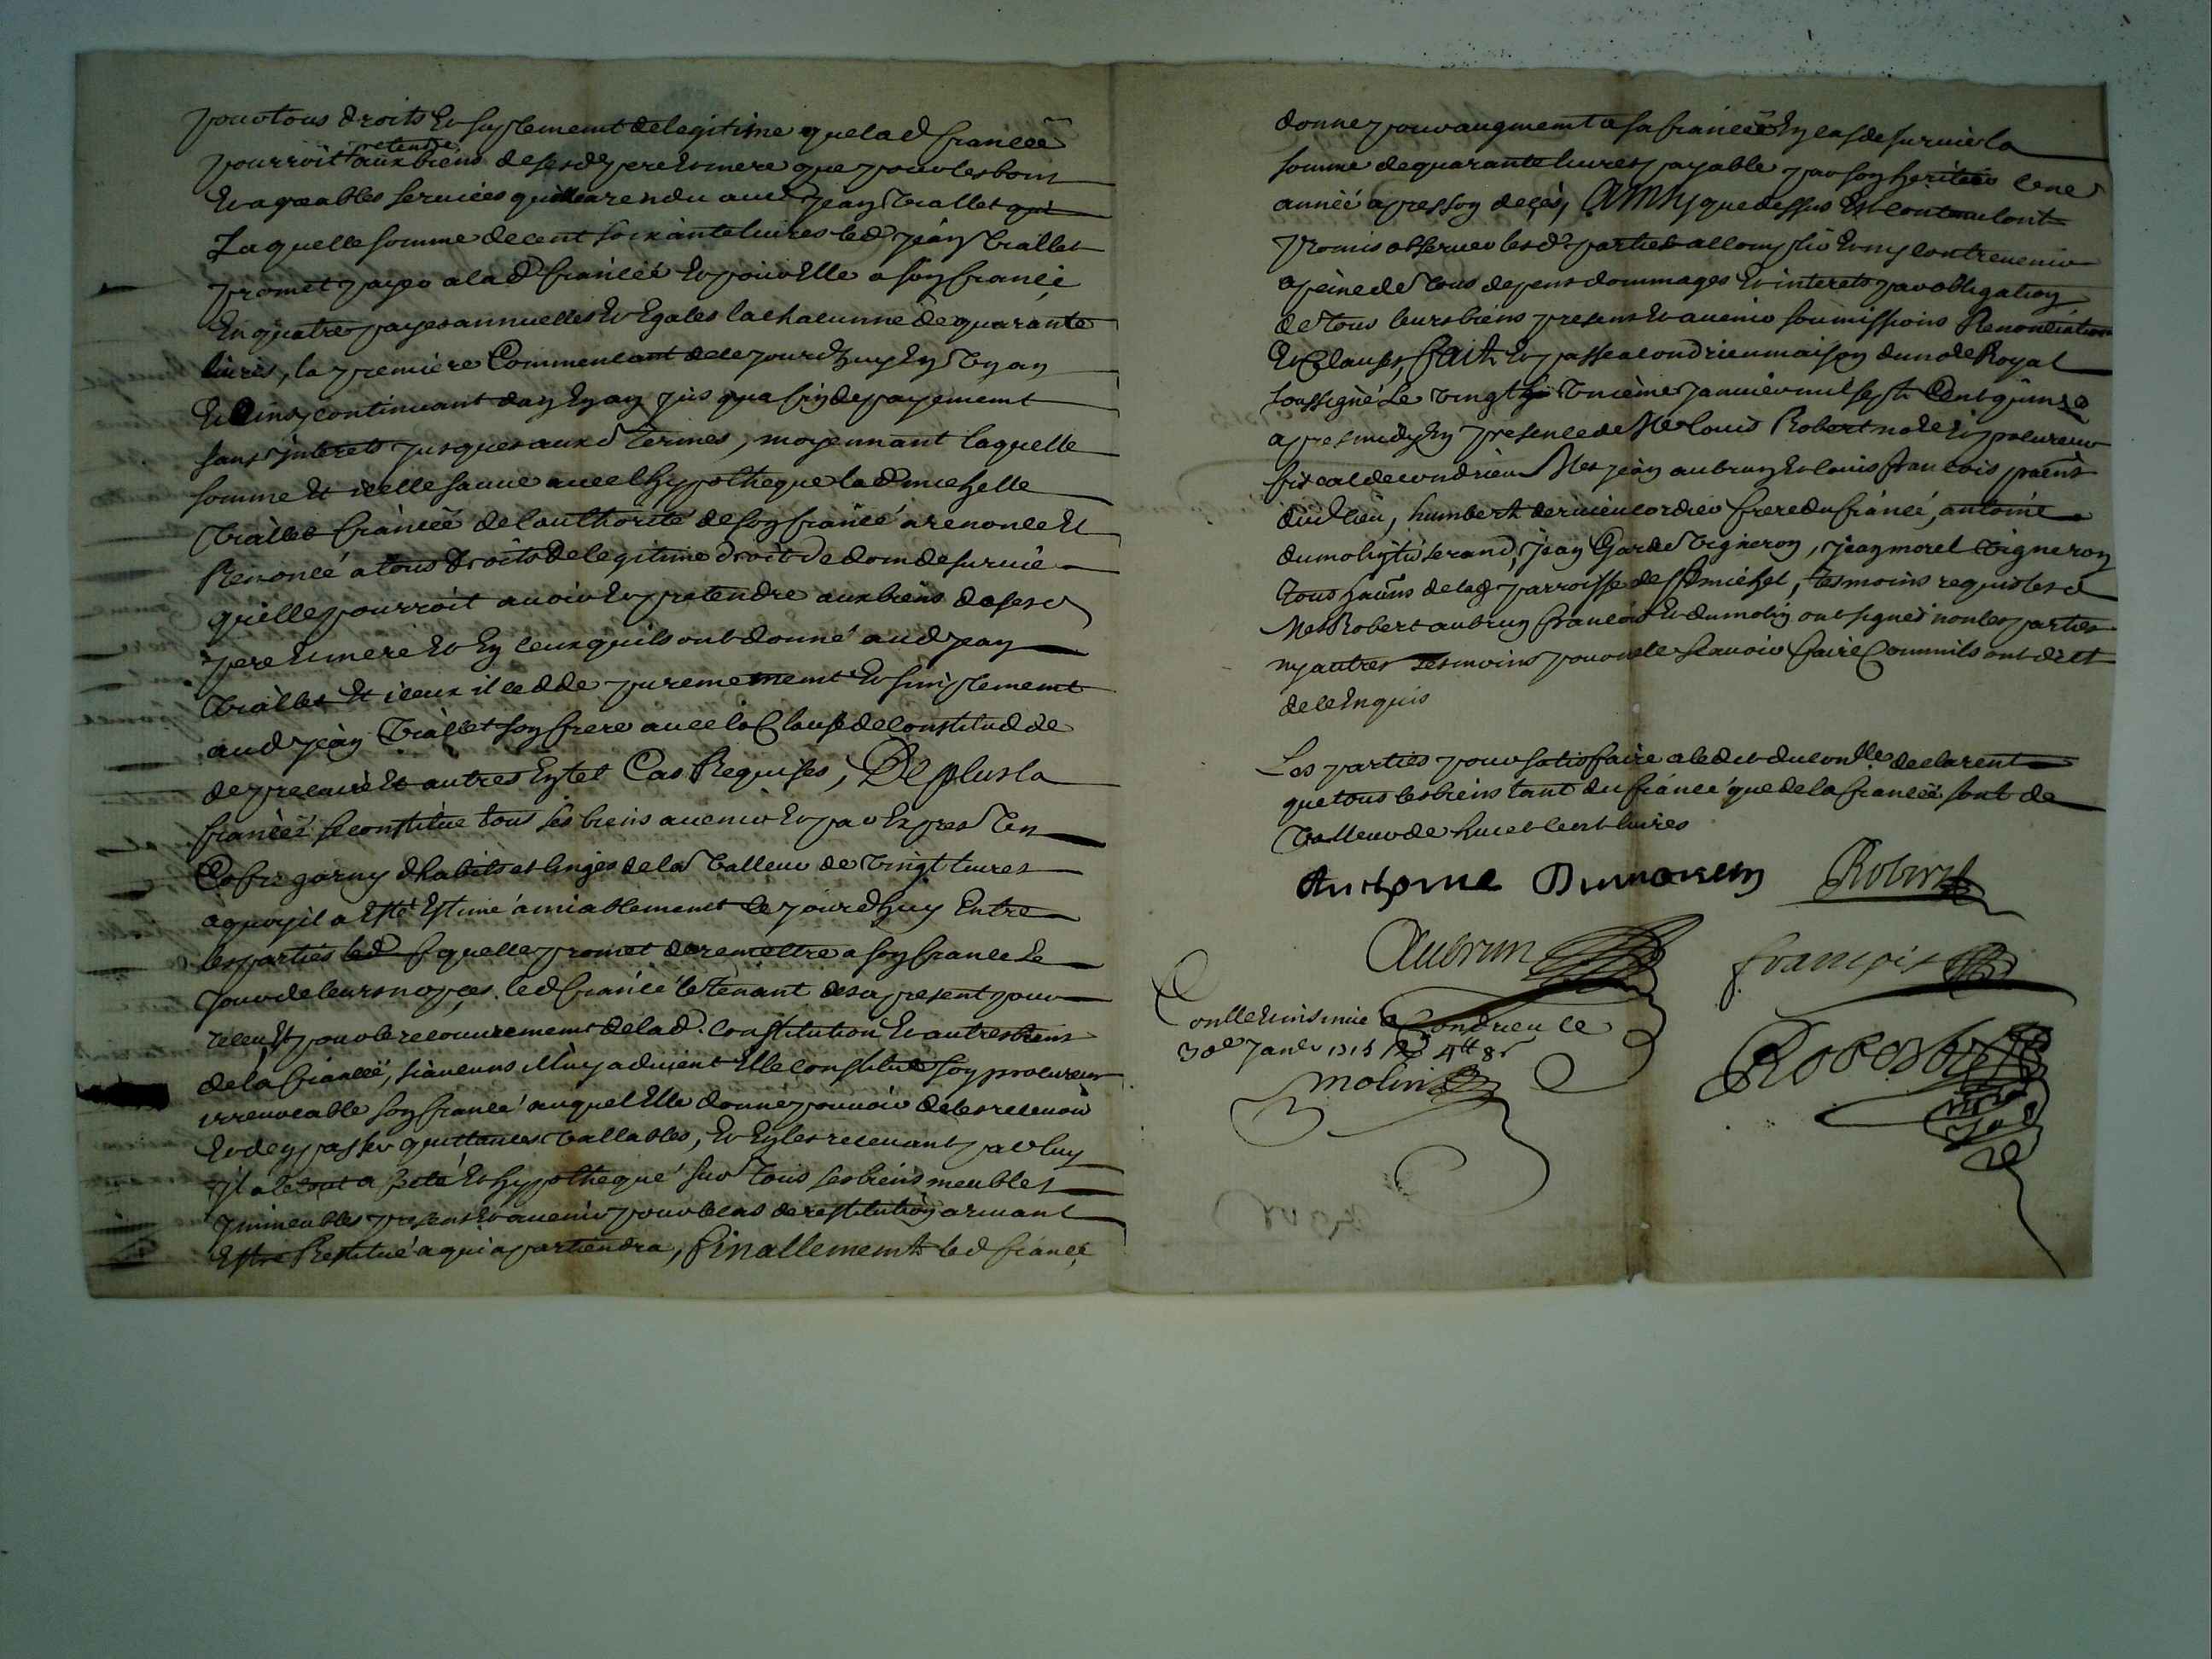 pour tous droits et suplement de legitime que lad fiancéé
pretendre
pourroit aux biens de sesd pere et mere que pour les bons
et agreables services quelle a rendu aud jean viallet qui
Laquelle somme de cent soixante livres led jean viallet
promet payer a lad fiancéé et pour elle a son fiancé
en quatre payes annuelles et egales la chacunne de quarante
livres, la premiere Commencant de ce jourdhuy en un an
et ainsy continuant dan en an jusqua fin de payement
sans interets jusques auxd termes, moyennant laquelle
somme et icelle sauve avec lhypotheque lad michelle
viallet fiancéé de lauthorité de son fiancé a renoncé et
Renoncé a tous droits de legitime droit de dom de survie
quelle pourroit avoir et pretendre aux biens de sesd
pere et mere et en ceux quils ont donné aud jean
viallet et iceux il cedde purement et simplement
aud jean viallet son frere avec la Clause de constitud de
de precaire et autres en tel Cas Requises, De plus la
fiancéé se constitue tous ses biens avenir et par expres un
Cofre garny dhabits et linges de la valleur de vingt livres
a quoy il a esté estimé amiablement ce jourdhuy entre
les parties led quelle promet de remettre a son fiancé le
jour de leurs nopces led fiancé le tenant des a present pour
receu et pour le recouvrement de lad. constitution et autres biens
de la fiancéé, si aucuns luy advient elle constitue son procureur
irrevocable son fiancé auquel elle donne pouvoir de les recevoir
et den passer quittances vallables, et en les recevant par luy
il a le tout asseté et hypothequé sur tous ses biens meubles
immeubles presens et avenir pour le cas de restitution arivant
estre Restitué a qui apartiendra, finallement led fiancé
donne pour augment a sa fiancéé en cas de survie la
somme de quarante livres payable par son heritier lune
année apres son deces, Ainsy que dessus est contenu lont
promis observer lesd parties accomplir et ny contrevenir
a peine de tous depens dommages et interets par obligation
de tous leurs biens presens et avenir soumissions Renonciations
et Clauses, fait et passé a condrieu maison du note Royal
soussigné Le vingt unième janvier mil sept Cent quinze
apres midy en presence de Me louis Robert note et procureur
fiscal de condrieu Mes jean aubrun et louis francois
dud lieu, humbert cordier frere du fiancé, antoine
dumolin tisserand, jean Garde vigneron, jean morel vigneron
tous de lad parroisse de St michel, tesmoins requis lesd
Mes Robert aubrun francois et dumolin ont signés non les parties
ny autres tesmoins pour ne le scavoir faire Comm ils ont dit
de ce enquis
Les parties pour satisfaire a ledit du conlle declarent
que tous les biens tant du fiancé que de la fiancéé sont de
valleur de huict cent livres
Robert
Aubrun
francois
Conllé et insinué a Condrieu le
30e janer 1715
molin
Robert